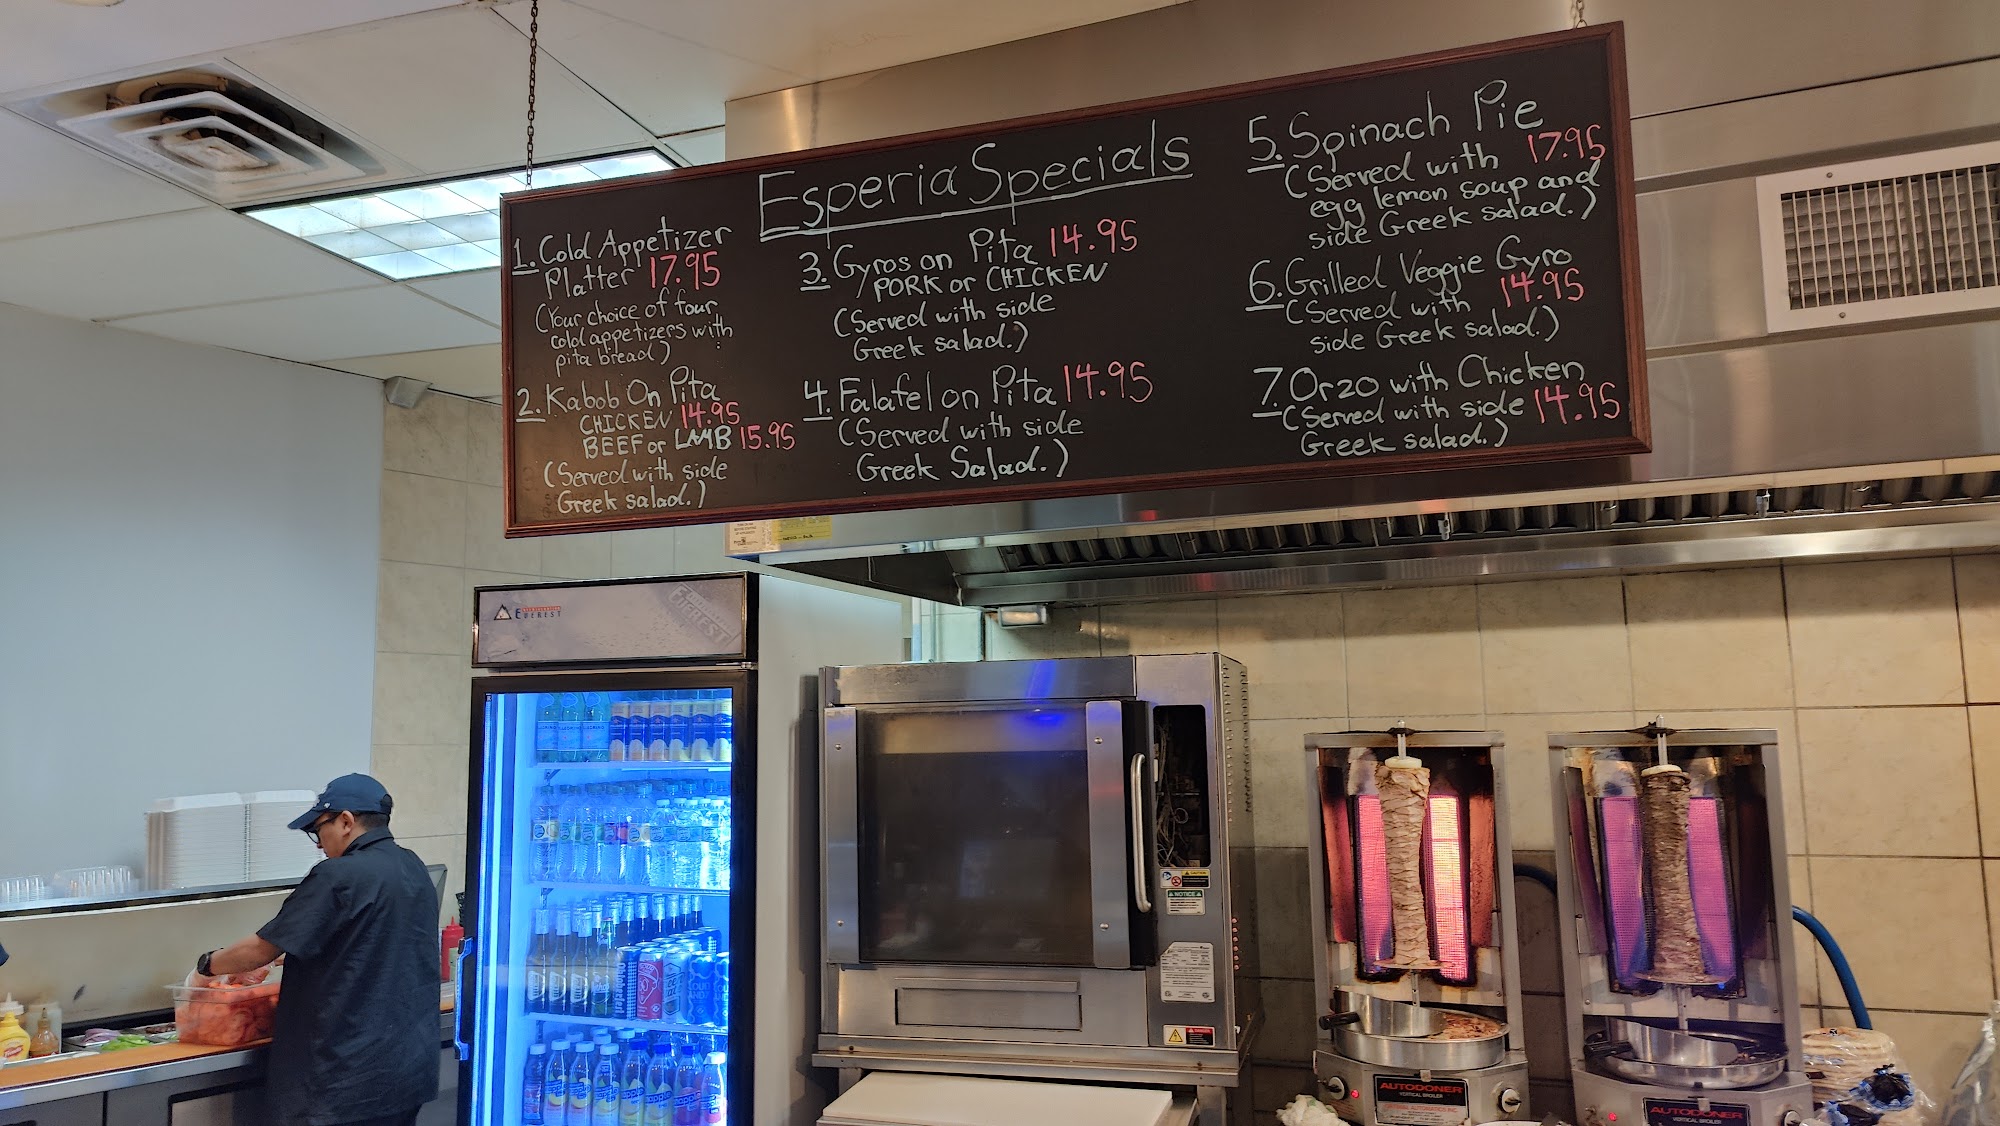 Esperia Specials
1. Cold Appetizer
Platter 17.95
(Your choice of four
cold appetizers with
pita bread)
2. Kabob On Pita
CHICKEN 14.95
BEEF or LAMB 15.95
(Served with side
Greek salad.)
3. Gyros on Pita 14.95
PORK or CHICKEN
(Served with side
Greek salad.)
4. Falafel on Pita 14.95
(Served with side
Greek Salad.)
5. Spinach Pie
(Served with 17.95
egg lemon soup and
side Greek salad.)
6. Grilled Veggie Gyro
(Served with 14.95
side Greek salad.)
7. Orzo with Chicken
(Served with side 14.95
Greek salad.)
EVEREST
EVEREST
CAUTION
NOTICE
AUTODONER
VERTICAL BROILER
AUTODONER
VERTICAL BROILER